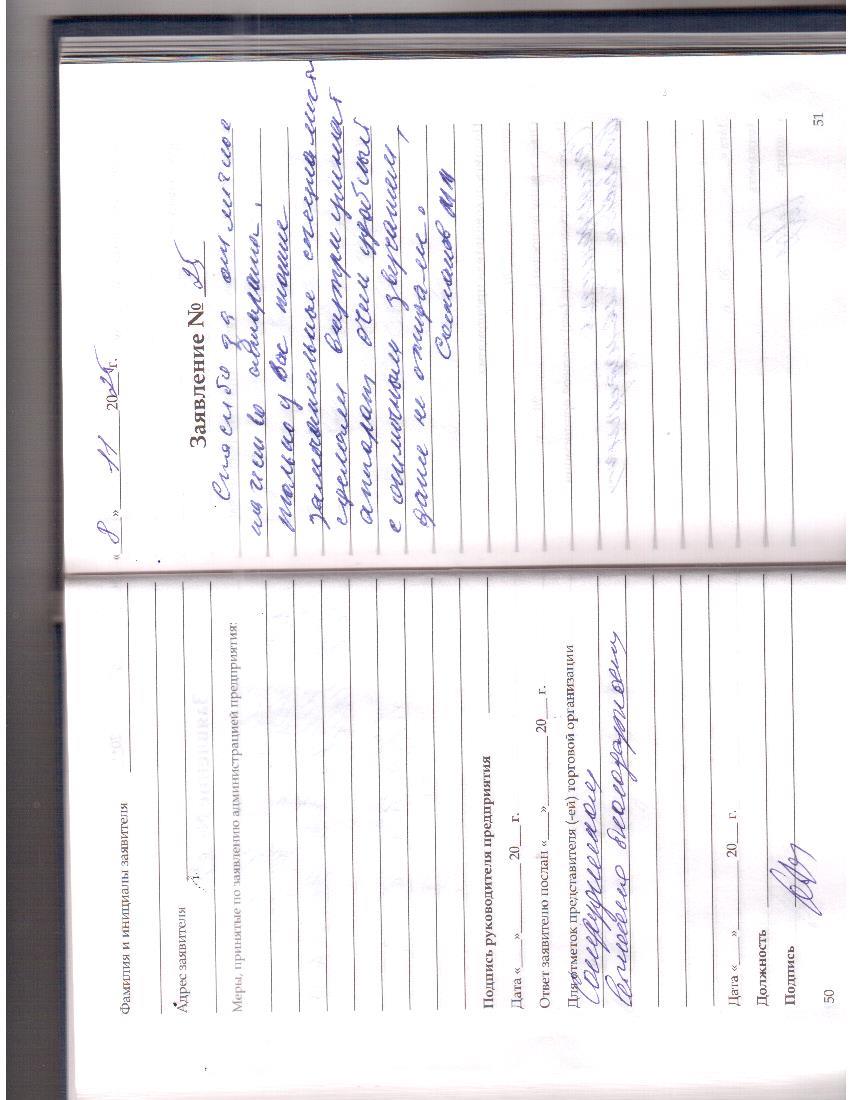 Фамилия и инициалы заявителя
Адрес заявителя
Меры, принятые по заявлению администрацией предприятия:
Подпись руководителя предприятия
Дата «___»________ 20__ г.
Ответ заявителю послан «___»________ 20__ г.
Для отметок представителя (-ей) торговой организации
Сотрудникам
объявлена благодарность
Дата «___»________ 20__ г.
Должность
Подпись
50
« 8 » 11 2025 г.
Заявление № 25
Спасибо за отличное
качество аппарата.
только у Вас такие
замечательные специалисты
сделали внутриушной
аппарат очень удобный
с отличным звучанием,
даже не ожидали.
51